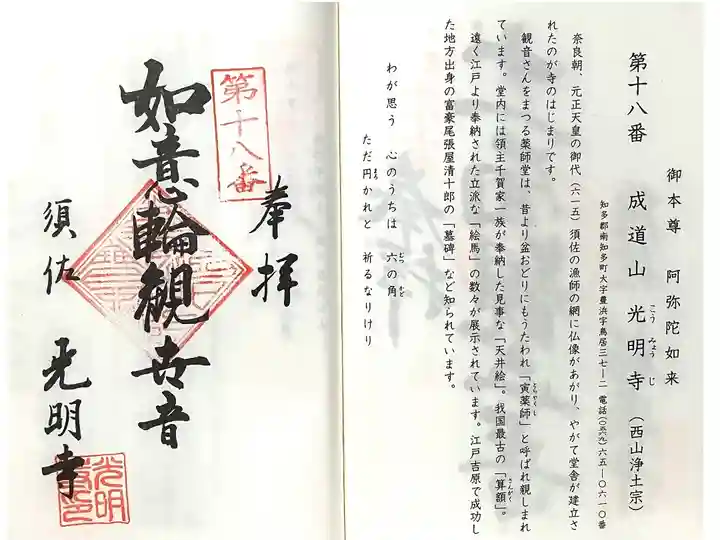 御本尊 阿弥陀如来
第十八番 成道山 光明寺(西山浄土宗)
こう みょう じ
知多郡南知多町大字豊浜字鳥居三七―二 電話(〇五六九)六五―〇六一〇番
奈良朝、元正天皇の御代(六一五)須佐の漁師の網に仏像があがり、やがて堂舎が建立さ
れたのが寺のはじまりです。
観音さんをまつる薬師堂は、昔より盆おどりにもうたわれ「寅薬師」と呼ばれ親しまれ
とらやくし
ています。堂内には領主千賀家一族が奉納した見事な「天井絵」。我国最古の「算額」。
さんがく
遠く江戸より奉納された立派な「絵馬」の数々が展示されています。江戸吉原で成功し
た地方出身の富豪尾張屋清十郎の「墓碑」など知られています。
わが思う 心のうちは 六の角
むつ かど
ただ円かれと 祈るなりけり
まろ
奉拝
第十八番
如意輪観世音
須佐 光明寺
光明